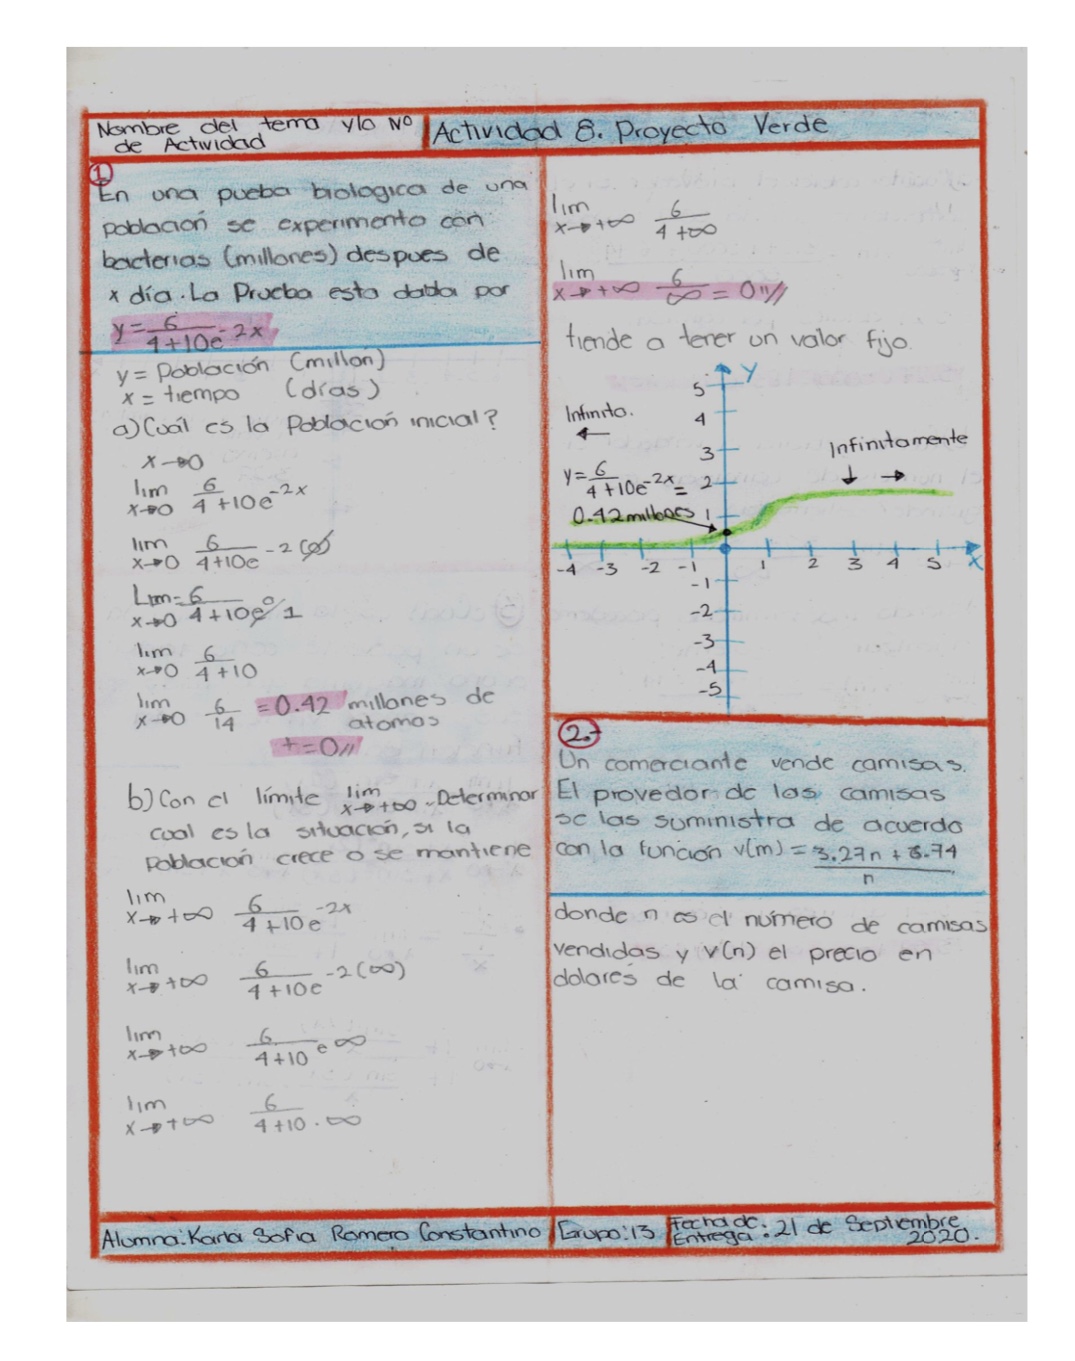 Nombre del tema y/o Nº
de Actividad
Actividad 8. Proyecto Verde
1
En una pueba biologica de una
población se experimento con
bacterias (millones) despues de
x día. La Prueba esta dada por
y = 6/4+10e - 2x
y = Población (millon)
x = tiempo (días)
a) Cuál es la Población inicial?
x→0
lim x→0 6/4+10e^-2x
lim x→0 6/4+10e - 2(0)
Lim= x→0 6/4+10e^0 1
lim x→0 6/4+10
lim x→0 6/14 = 0.42 millones de
atomos
t = 0//
b) Con el límite lim x→+∞. Determinar
cual es la situación, si la
Población crece o se mantiene
lim x→+∞ 6/4+10e^-2x
lim x→+∞ 6/4+10e - 2(∞)
lim x→+∞ 6/4+10 e∞
lim x→+∞ 6/4+10 . ∞
lim x→+∞ 6/4+∞
lim x→+∞ 6/∞ = 0//
tiende a tener un valor fijo.
Y
5
4
3
2
1
Infinito.
Infinitamente
y = 6/4+10e^-2x =
0.42 millones
-4 -3 -2 -1 1 2 3 4 5 X
-1
-2
-3
-4
-5
2.-
Un comerciante vende camisas.
El provedor de las camisas
se las suministra de acuerdo
con la función v(m) = 3.27n + 8.74/n
donde n es el número de camisas
vendidas y v(n) el precio en
dolares de la camisa.
Alumna: Karla Sofia Romero Constantino
Grupo: 13
Fecha de
Entrega: 21 de Septiembre
2020.